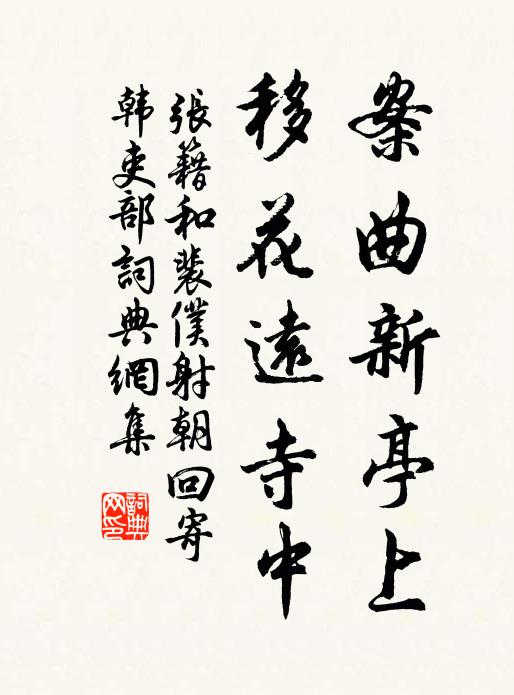 案曲新亭上
移花遠寺中
張籍和裴僕射朝回寄
韩吏部詞典網集
詞典
网印